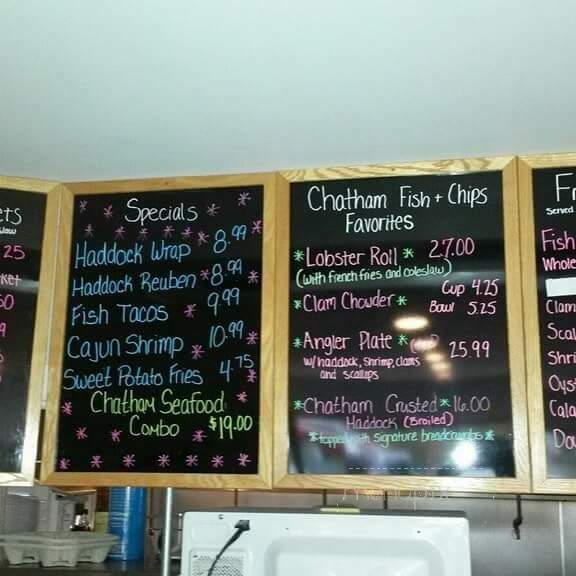 ets
25
Specials
Haddock Wrap 8.99
Haddock Reuben 8.99
Fish Tacos 9.99
Cajun Shrimp 10.99
Sweet Potato Fries 4.75
Chatham Seafood
Combo $19.00
Chatham Fish + Chips
Favorites
Lobster Roll 27.00
(with french fries and coleslaw)
Clam Chowder Cup 4.25
Bowl 5.25
Angler Plate 25.99
w/haddock, shrimp, clams
and scallops
Chatham Crusted 16.00
Haddock (Broiled)
topped with signature breadcrumbs
Served
Fish
Whole
Clam
Scal
Shri
Oyst
Cala